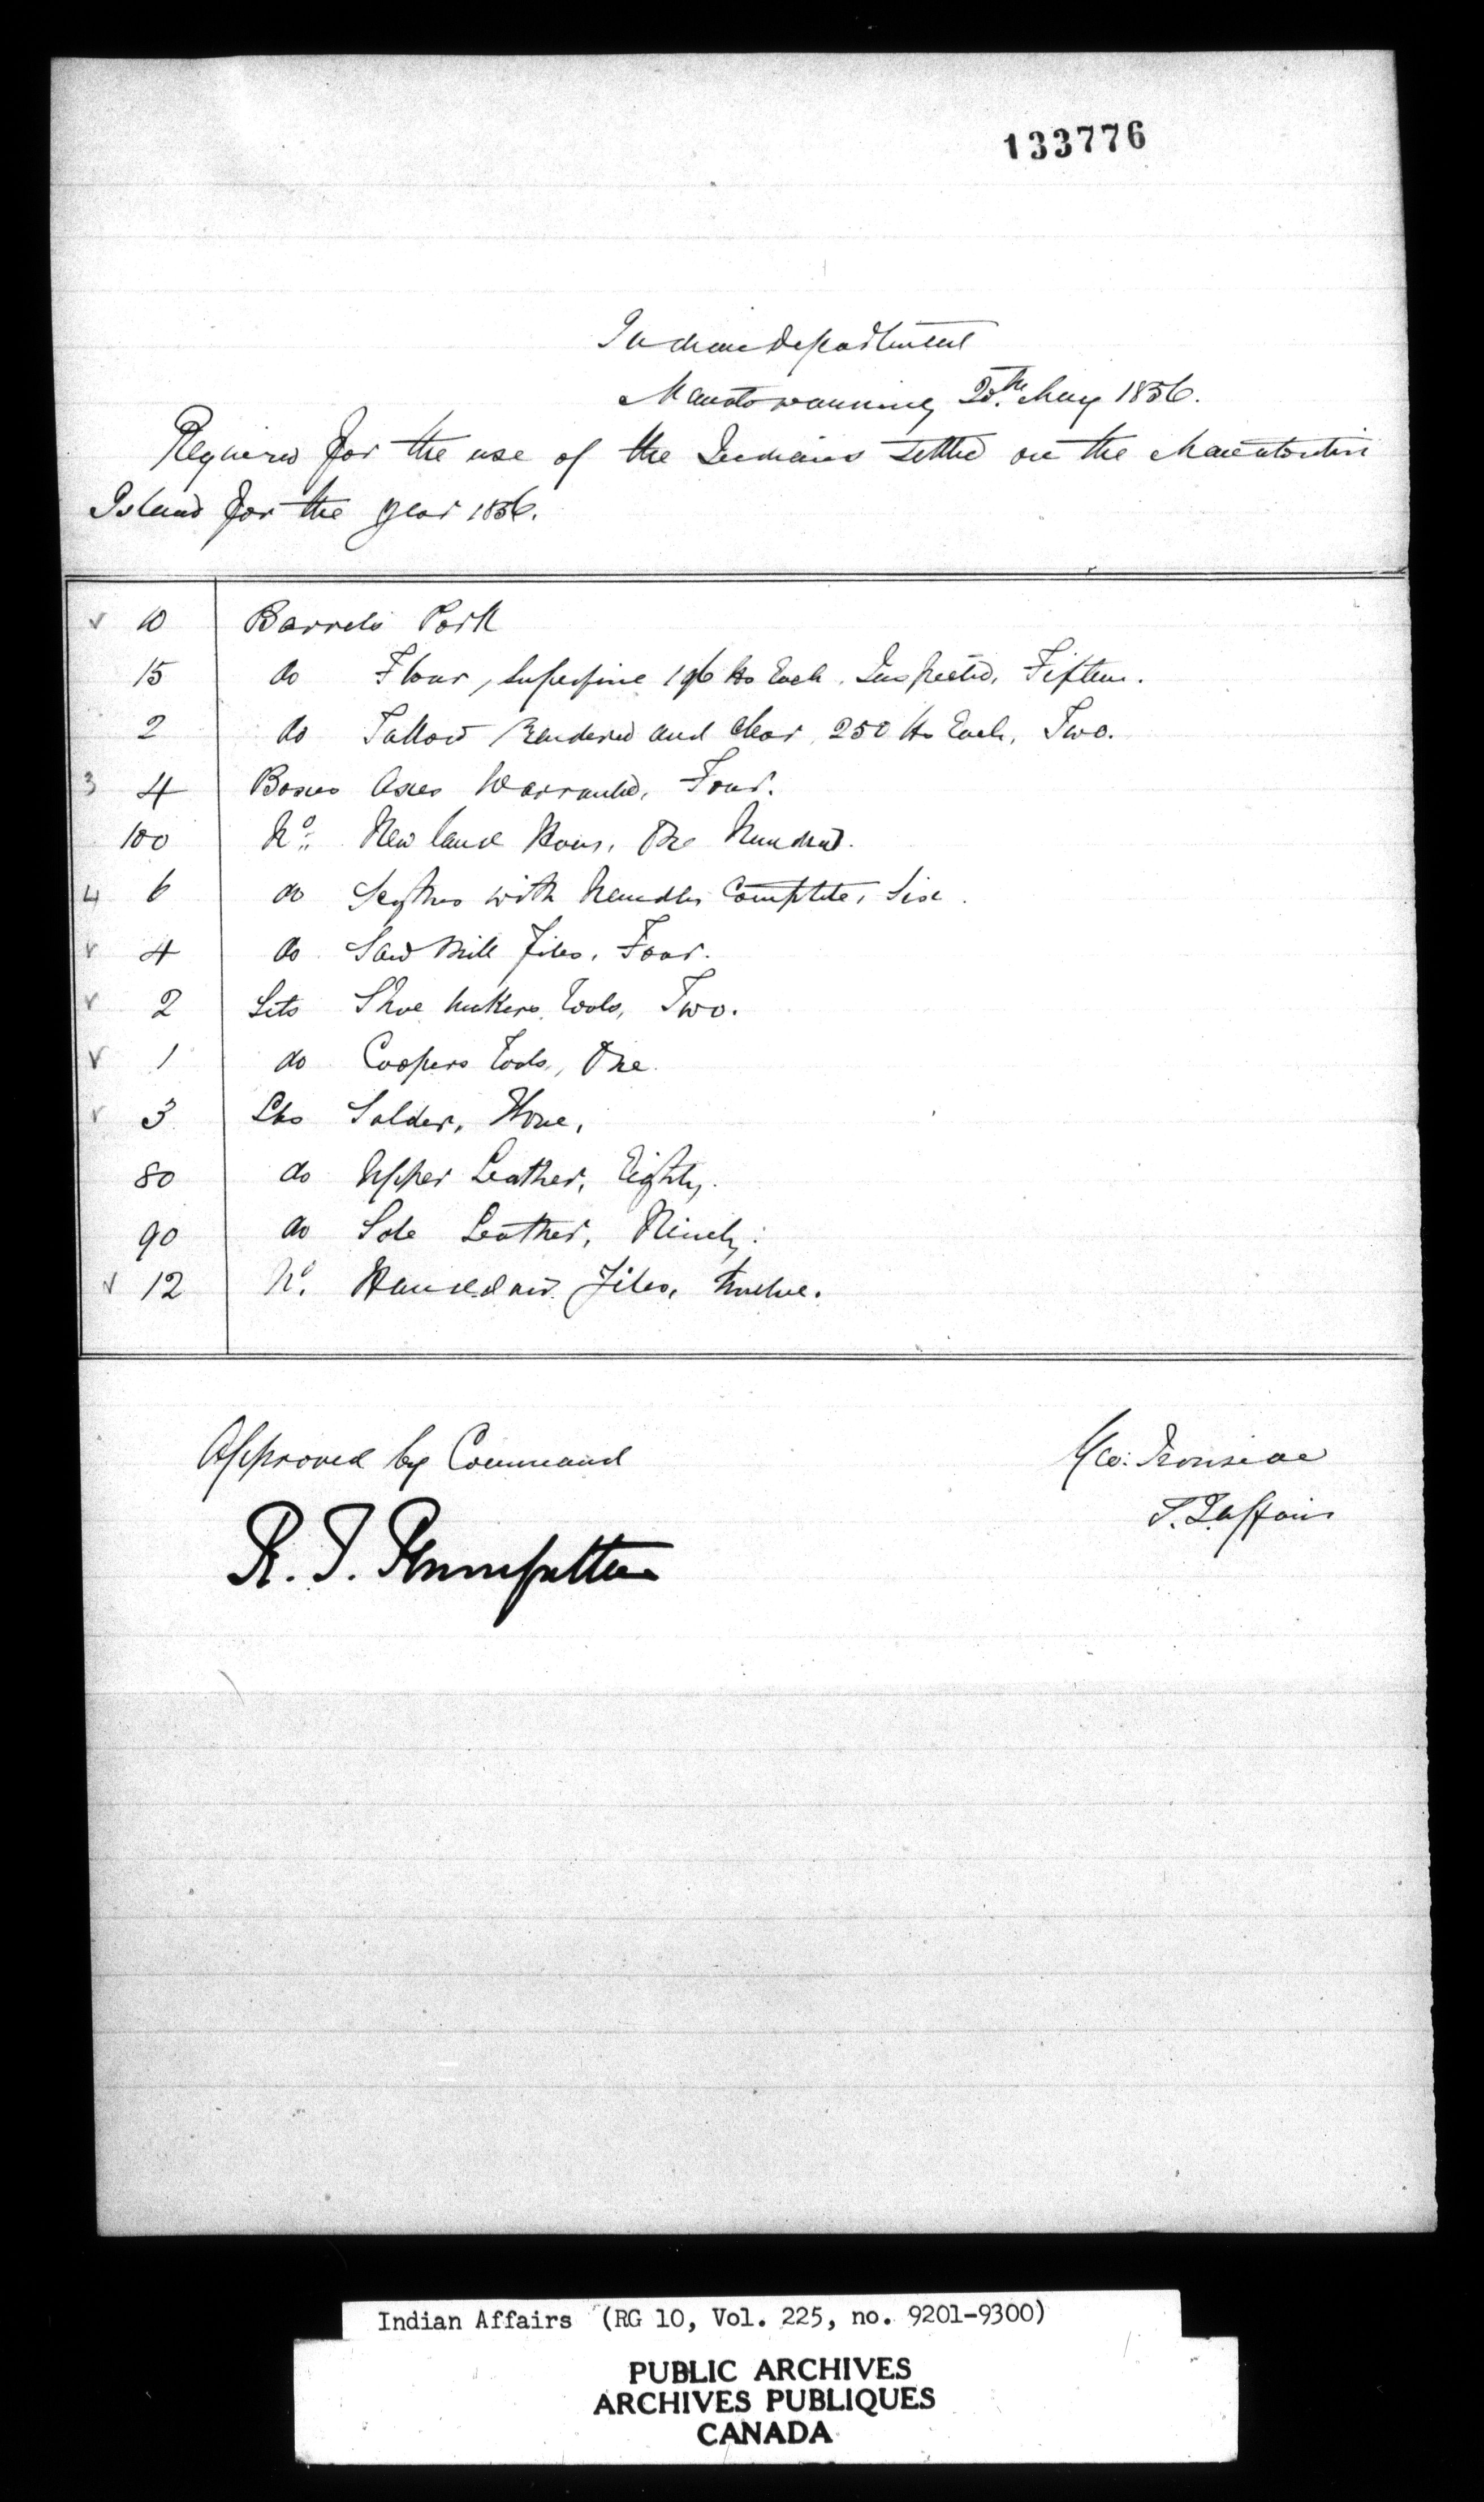 133776
Indian Department
Manitowaning 20th May 1856.
Required for the use of the Indians settled on the Manitoulin
Island for the year 1856.
v 10 Barrels Pork
15 do Flour, Superfine 196 lbs Each, Inspected, Fifteen.
2 do Tallow Rendered and clear 250 lbs Each, Two.
3 4 Boxes Axes Warranted, Four.
100 No. New land Hoes, One Hundred.
4 6 do Scythes with handles Complete, Six.
v 4 do Saw Mill files, Four.
v 2 Sets Shoe makers Tools, Two.
v 1 do Coopers Tools, One.
v 3 Lbs Solder, Three,
80 do Upper Leather, Eighty.
90 do Sole Leather, Ninety.
v 12 No. Handsaw files, twelve.
Approved by Command
R. T. Pennefather
Geo: Ironside
S. I. Affairs
Indian Affairs (RG 10, Vol. 225, no. 9201-9300)
PUBLIC ARCHIVES
ARCHIVES PUBLIQUES
CANADA